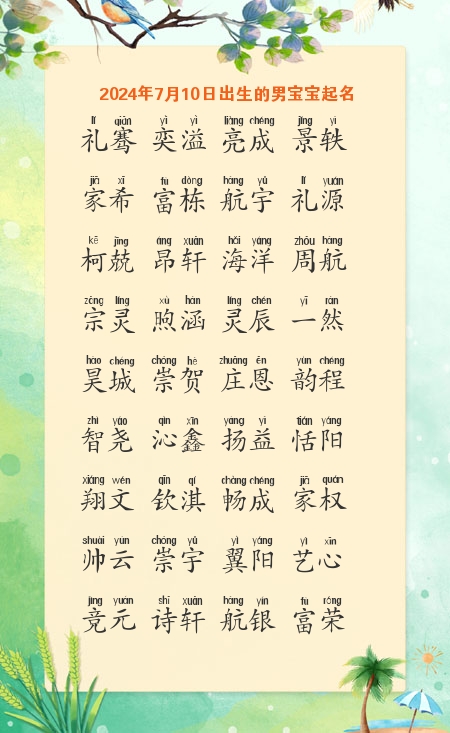 2024年7月10日出生的男宝宝起名
lǐ qiān yì yì liàng chéng jǐng yì
礼骞 奕溢 亮成 景轶
jiā xī fù dòng háng yǔ lǐ yuán
家希 富栋 航宇 礼源
kē jīng áng xuān hǎi yáng zhōu háng
柯兢 昂轩 海洋 周航
zōng líng xù hán líng chén yī rán
宗灵 煦涵 灵辰 一然
hào chéng chóng hè zhuāng ēn yùn chéng
昊城 崇贺 庄恩 韵程
zhì yáo qìn xīn yáng yì tián yáng
智尧 沁鑫 扬益 恬阳
xiáng wén qīn qí chàng chéng jiā quán
翔文 钦淇 畅成 家权
shuài yún chóng yǔ yì yáng yì xīn
帅云 崇宇 翼阳 艺心
jìng yuán shī xuān háng yín fù róng
竞元 诗轩 航银 富荣